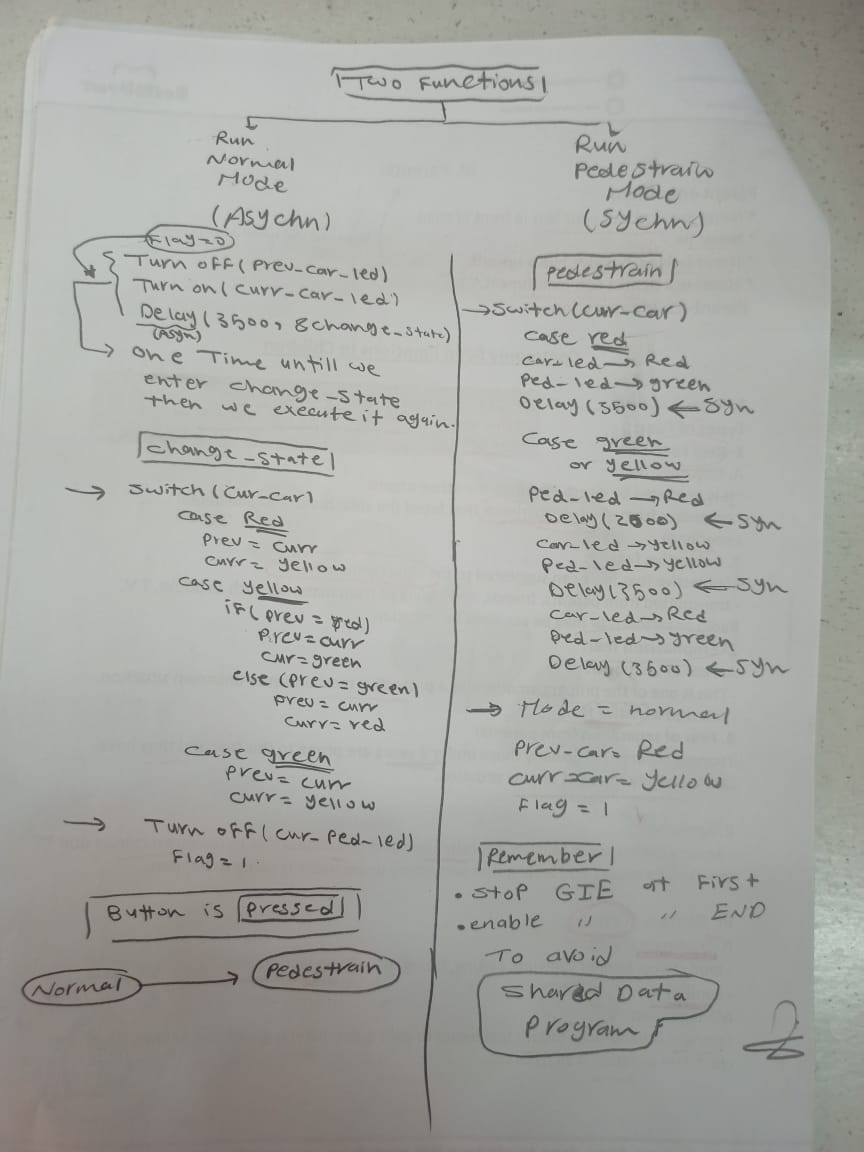 Two Functions
Run
Normal
Mode
(Asychn)
Run
Pedestrain
Mode
(Sychn)
Flag=0
Turn off(Prev-car-led)
Turn on(curr-car-led)
Delay(3500, &change-state)
(Asyn)
one Time untill we
enter change-state
then we execute it again.
change-state
→ switch(cur-car)
case Red
Prev = curr
curr = yellow
case yellow
if(prev = red)
Prev=curr
cur=green
else (prev=green)
prev = curr
curr=red
case green
Prev= curr
curr= yellow
→ Turn off(cur-ped-led)
Flag=1.
Button is pressed
Normal → Pedestrain
Pedestrain
→ switch(curr-car)
case red
car-led → Red
Ped-led → green
Delay(3500) ← Syn
Case green
or yellow
Ped-led → Red
Delay(2500) ← Syn
car-led → yellow
Ped-led → yellow
Delay(3500) ← Syn
car-led → Red
Ped-led → green
Delay(3500) ← Syn
→ Mode = normal
Prev-car= Red
curr-car= yellow
Flag = 1
Remember
• stop GIE at First
• enable " " END
To avoid
Shared Data
Program